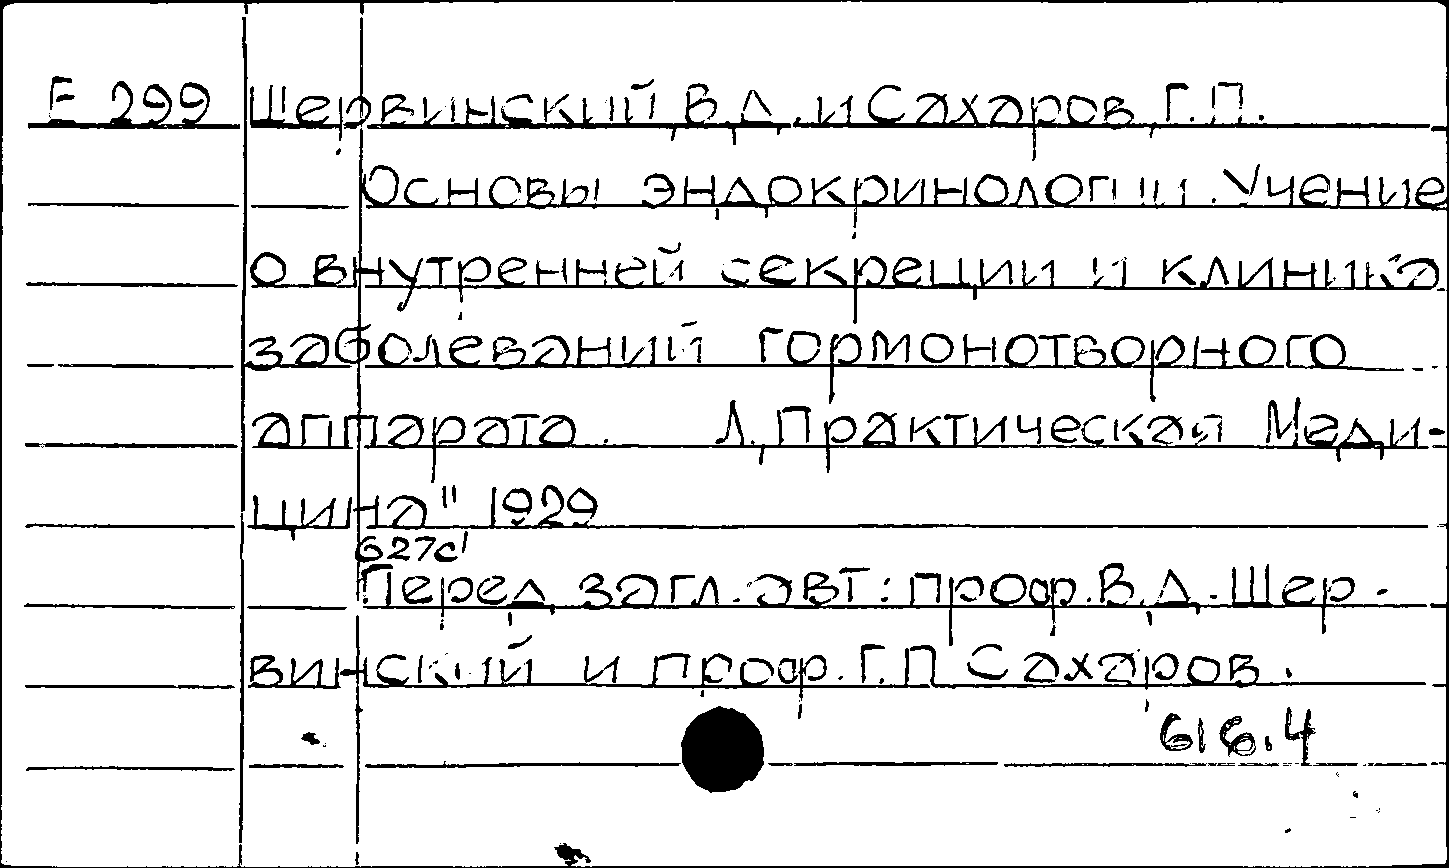 Е 299 Шервинский, В.Д. и Сахаров, Г.П.
Основы эндокринологии. Учение
о внутренней секреции и клиника
заболеваний гормонотворного
аппарата. Л, Практическая Меди-
цина" 1929
627с'
Перед загл. авт: проф. В.Д. Шер-
винский и проф. Г.П Сахаров.
616.4